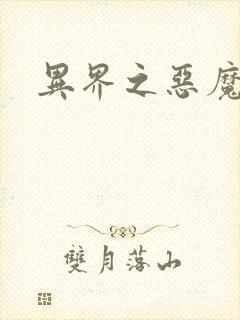 異界之惡魔
雙月落山